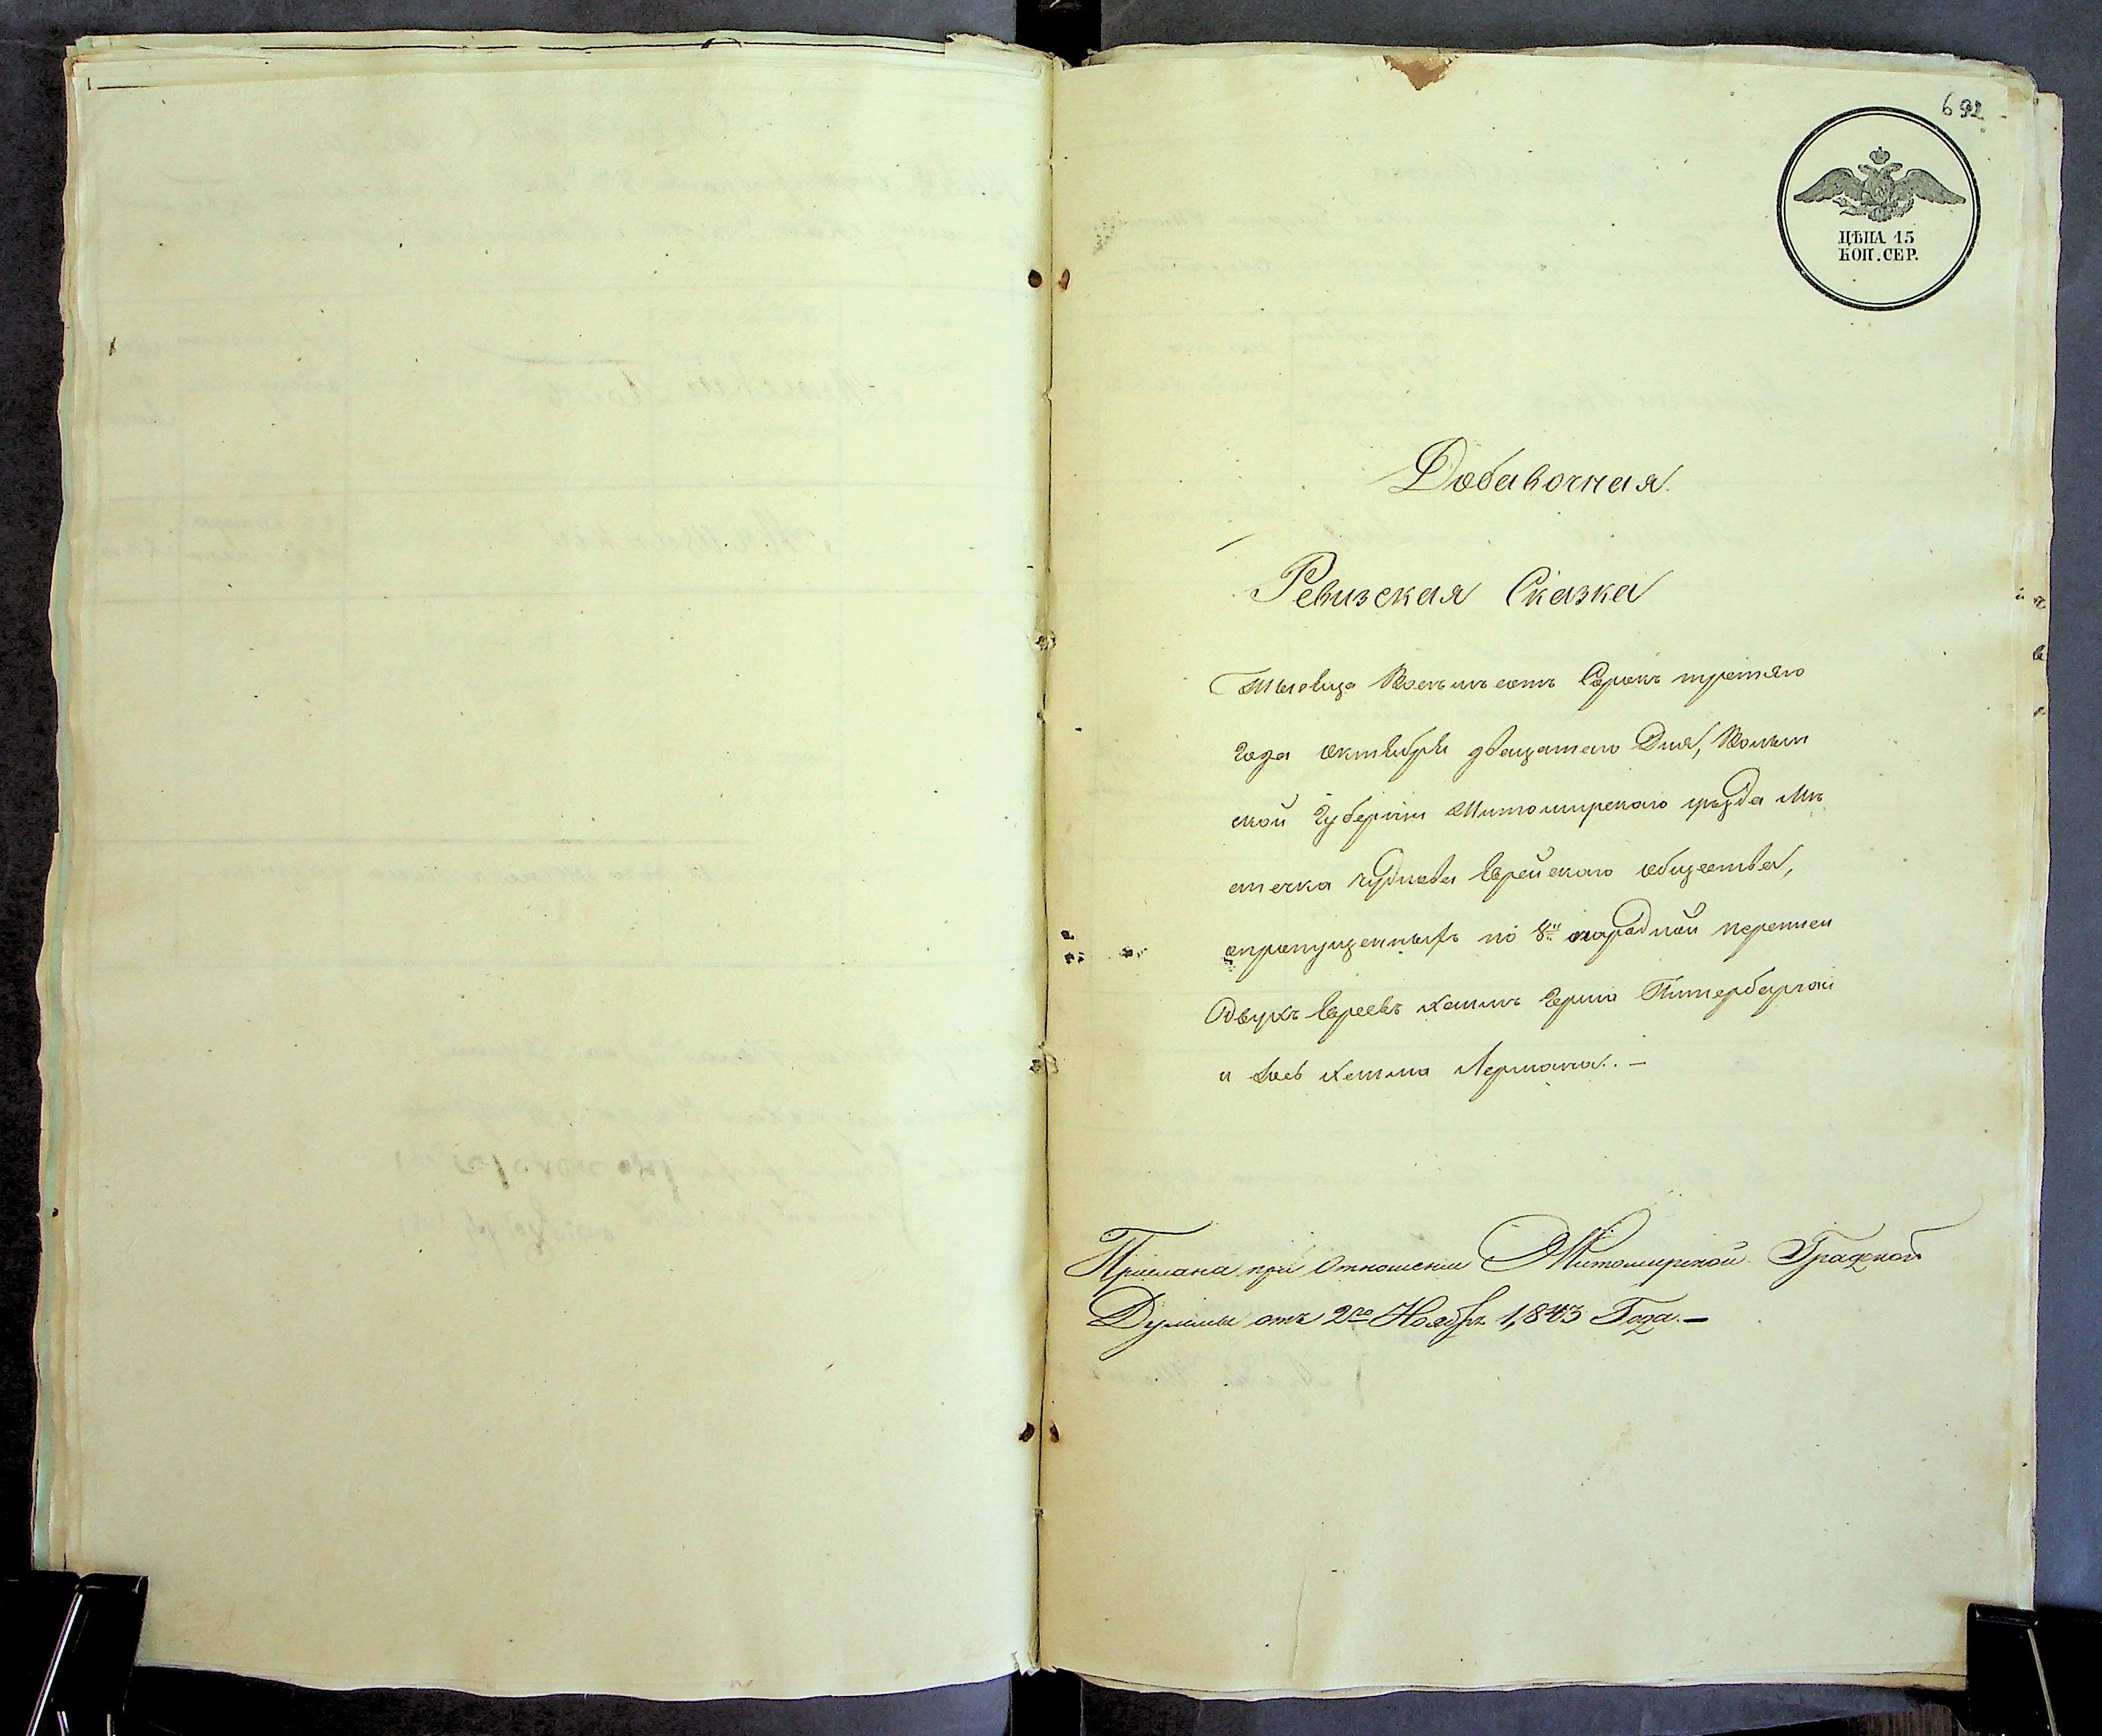 692
ЦѢНА 15
КОП. СЕР.
Добавочная
Ревизская Сказка
Тысяща Восемьсотъ Сорокъ третяго
Года Октября двацатаго Дня, Волын
ской Губерніи Житомирскаго уѣзда Мѣ
стечка Чуднова Еврейскаго общества,
опропущенныхъ по 8й народной переписи
Двухъ Евреевъ Герша
и Лермана. —
Прислана при Отношеніи Житомирской Градской
Думы отъ 2го Ноября 1,843 Года. —